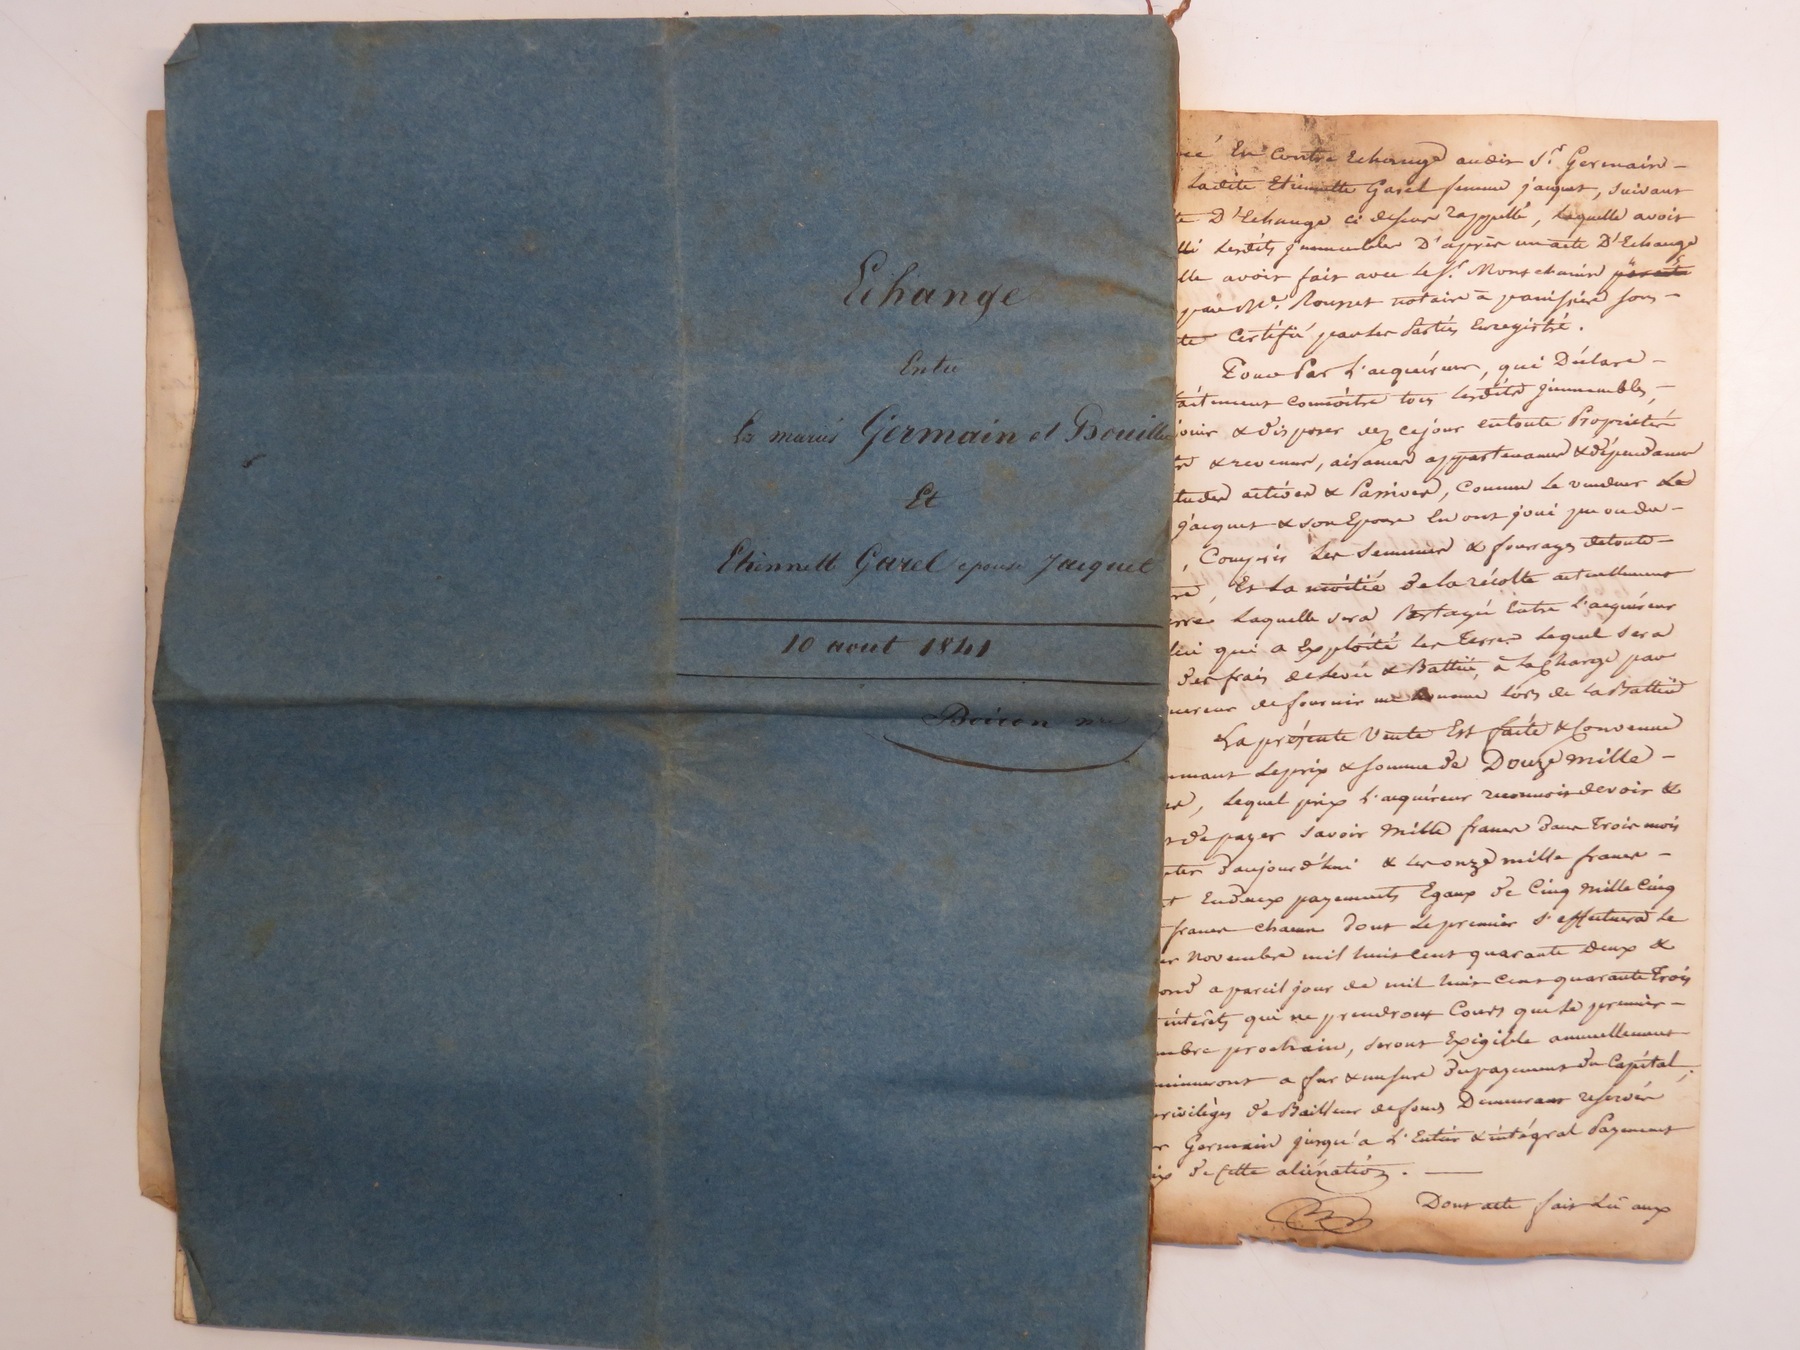 Echange
Entre
les mariés Germain et Bouillet
Et
Etiennett Garel epouse Jacquet
10 aout 1841
Boiron nre
en contre Echange audit Sr. Germain
Ladite Etiennette Garel femme jacquet, suivant
D'Echange ci dessus rappellé, laquelle avoit
lesdits jmmeubles D'après un acte D'Echange
avoit fait avec le Sr. Montchanin
par Me. Rousset notaire à panissière sous
Certifié par les Parties Enregistré.
Pour Par L'acquéreur, qui Déclare
connoitre tous lesdits jmmeubles,
jouir & disposer dez cejour entoute Proprieté
& revenus, aisances appartenances & dépendances
actives & Passives, Comme Le vendeur Le
jacquet & son Epouse En ont joui pu ou du
, Compris Les Semences & fourrages detoute
, Et La moitié de la récolte actuellement
Laquelle sera Partagée Entre L'acquéreur
qui a Exploité Les Terres Lequel sera
des frais de Levée & Battue, à la Charge par
de fournir un homme lors de La Battue
La présente Vente Est faite & Convenue
Le prix & somme de Douze mille
, Lequel prix L'acquéreur reconnoit devoir &
de payer savoir Mille francs dans Trois mois
d'aujourd'hui & les onze mille francs
En deux payements Egaux de Cinq Mille Cinq
francs chacun dont Le premier s'effectuera Le
Novembre mil huit cent quarante Deux &
a pareil jour de mil huit cent quarante Trois
intérêts qui ne prendront Cours que Le premier
prochain, seront Exigible annuellement
a fur & mesure du payement du Capital,
privilèges de Bailleur de fonds Demeurant réservés
Germain jusqu'a L'Entier & intégral Payement
de Cette aliénation.
Dont acte fait Lu aux